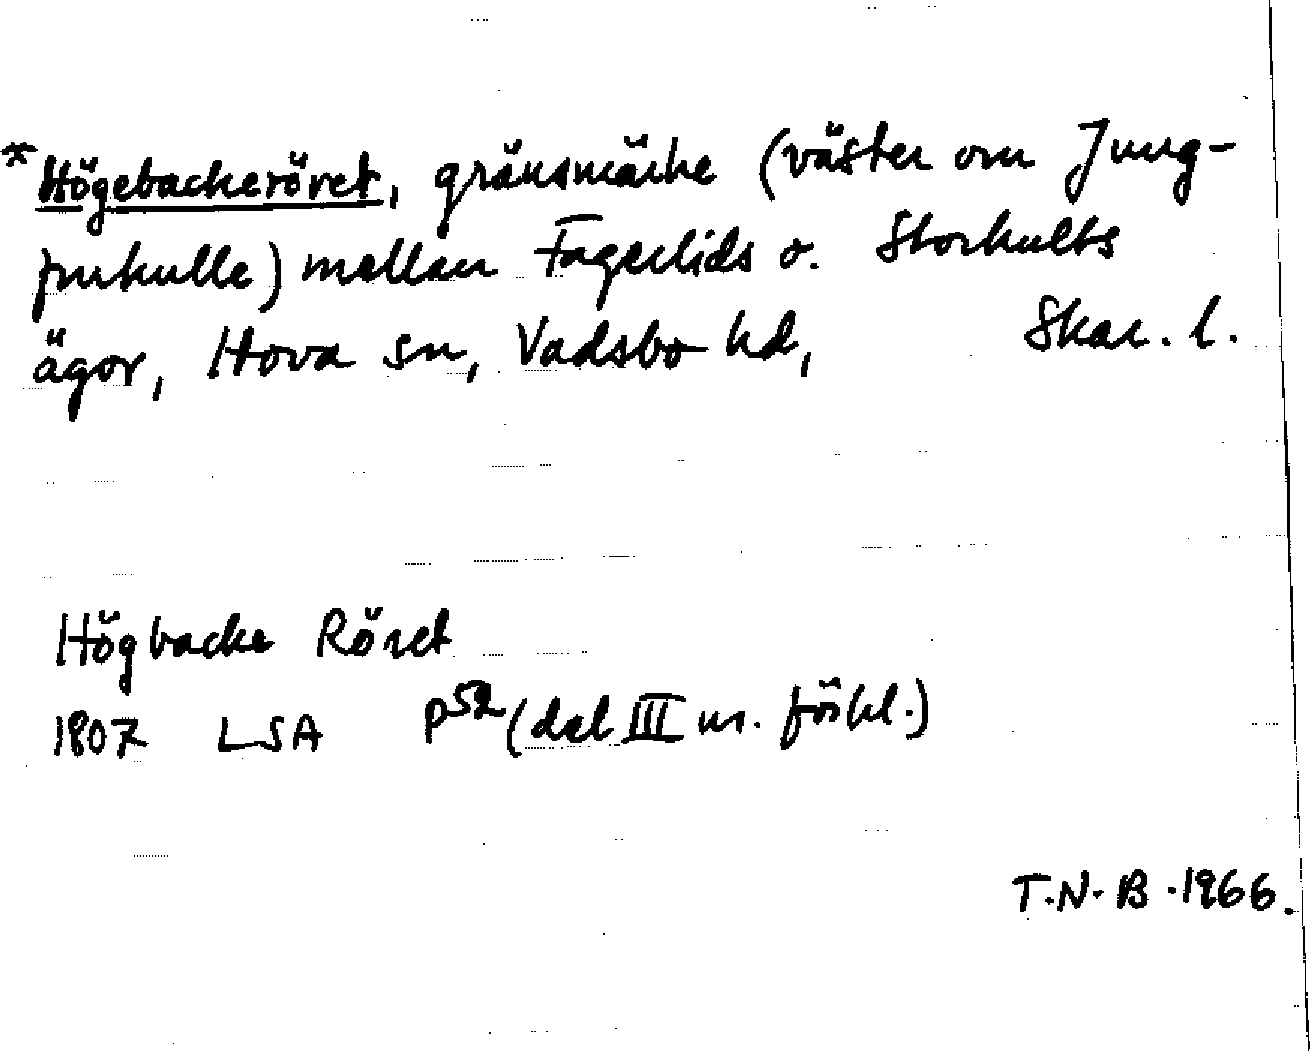 *Högebackeröret, gränsmärke (väster om Jung-
frukulle) mellan Fagerlids o. Storkults
ägor, Hova sn, Vadsbo hd, Skar. l.
Högbacke Röret
1807 LSA P52 (del III nr. förkl.)
T.N.B. 1966.